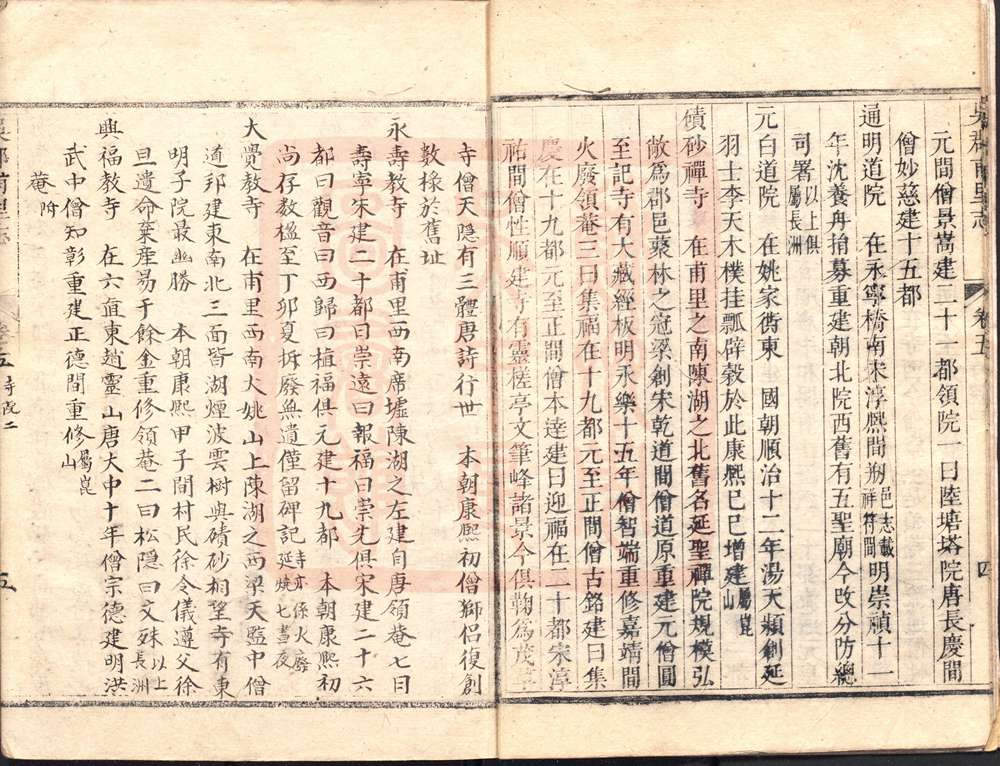 吳郡甫里志
卷五
四
元間僧景嵩建二十一都領院一曰陸塘塔院唐長慶間
僧妙慈建十五都
通明道院　在永寧橋南宋淳熙間朔邑志載祥符間明崇禎十一
年沈養舟捐募重建朝北院西舊有五聖廟今改分防總
司署以上俱屬長洲
元白道院　在姚家衖東　國朝順治十二年湯天類創延
羽士李天木樸挂瓢辟穀於此康熙己巳增建屬崑山
磧砂禪寺　在甫里之南陳湖之北舊名延聖禪院規模弘
敞爲郡邑叢林之冠梁創宋乾道間僧道原重建元僧圓
至記寺有大藏經板明永樂十五年僧智端重修嘉靖間
火廢領菴三曰集福在十九都元至正間僧古銘建曰集
慶在十九都元至正間僧本逹建曰迎福在二十都宋淳
祐間僧性順建寺有靈槎亭文筆峰諸景今俱鞠爲茂草
寺僧天隱有三體唐詩行世　本朝康熙初僧獅侶復創
數椽於舊址
永壽教寺　在甫里西南席墟陳湖之左建自唐領菴七曰
壽寧宋建二十都曰崇遠曰報福曰崇先俱宋建二十六
都曰觀音曰西歸曰植福俱元建十九都　本朝康熙初
尚存數楹至丁卯夏拆廢無遺僅留碑記寺亦係火廢延燒七晝夜
大覺教寺　在甫里西南大姚山上陳湖之西梁天監中僧
道邦建東南北三面皆湖煙波雲樹與磧砂相望寺有東
明子院最幽勝　本朝康熙甲子間村民徐令儀遵父徐
旦遺命棄産易于餘金重修領菴二曰松隱曰文殊以上長洲
興福教寺　在六直東趙靈山唐大中十年僧宗德建明洪
武中僧知彰重建正德間重修屬崑山
菴附
吳郡甫里志
卷五
寺院二
五